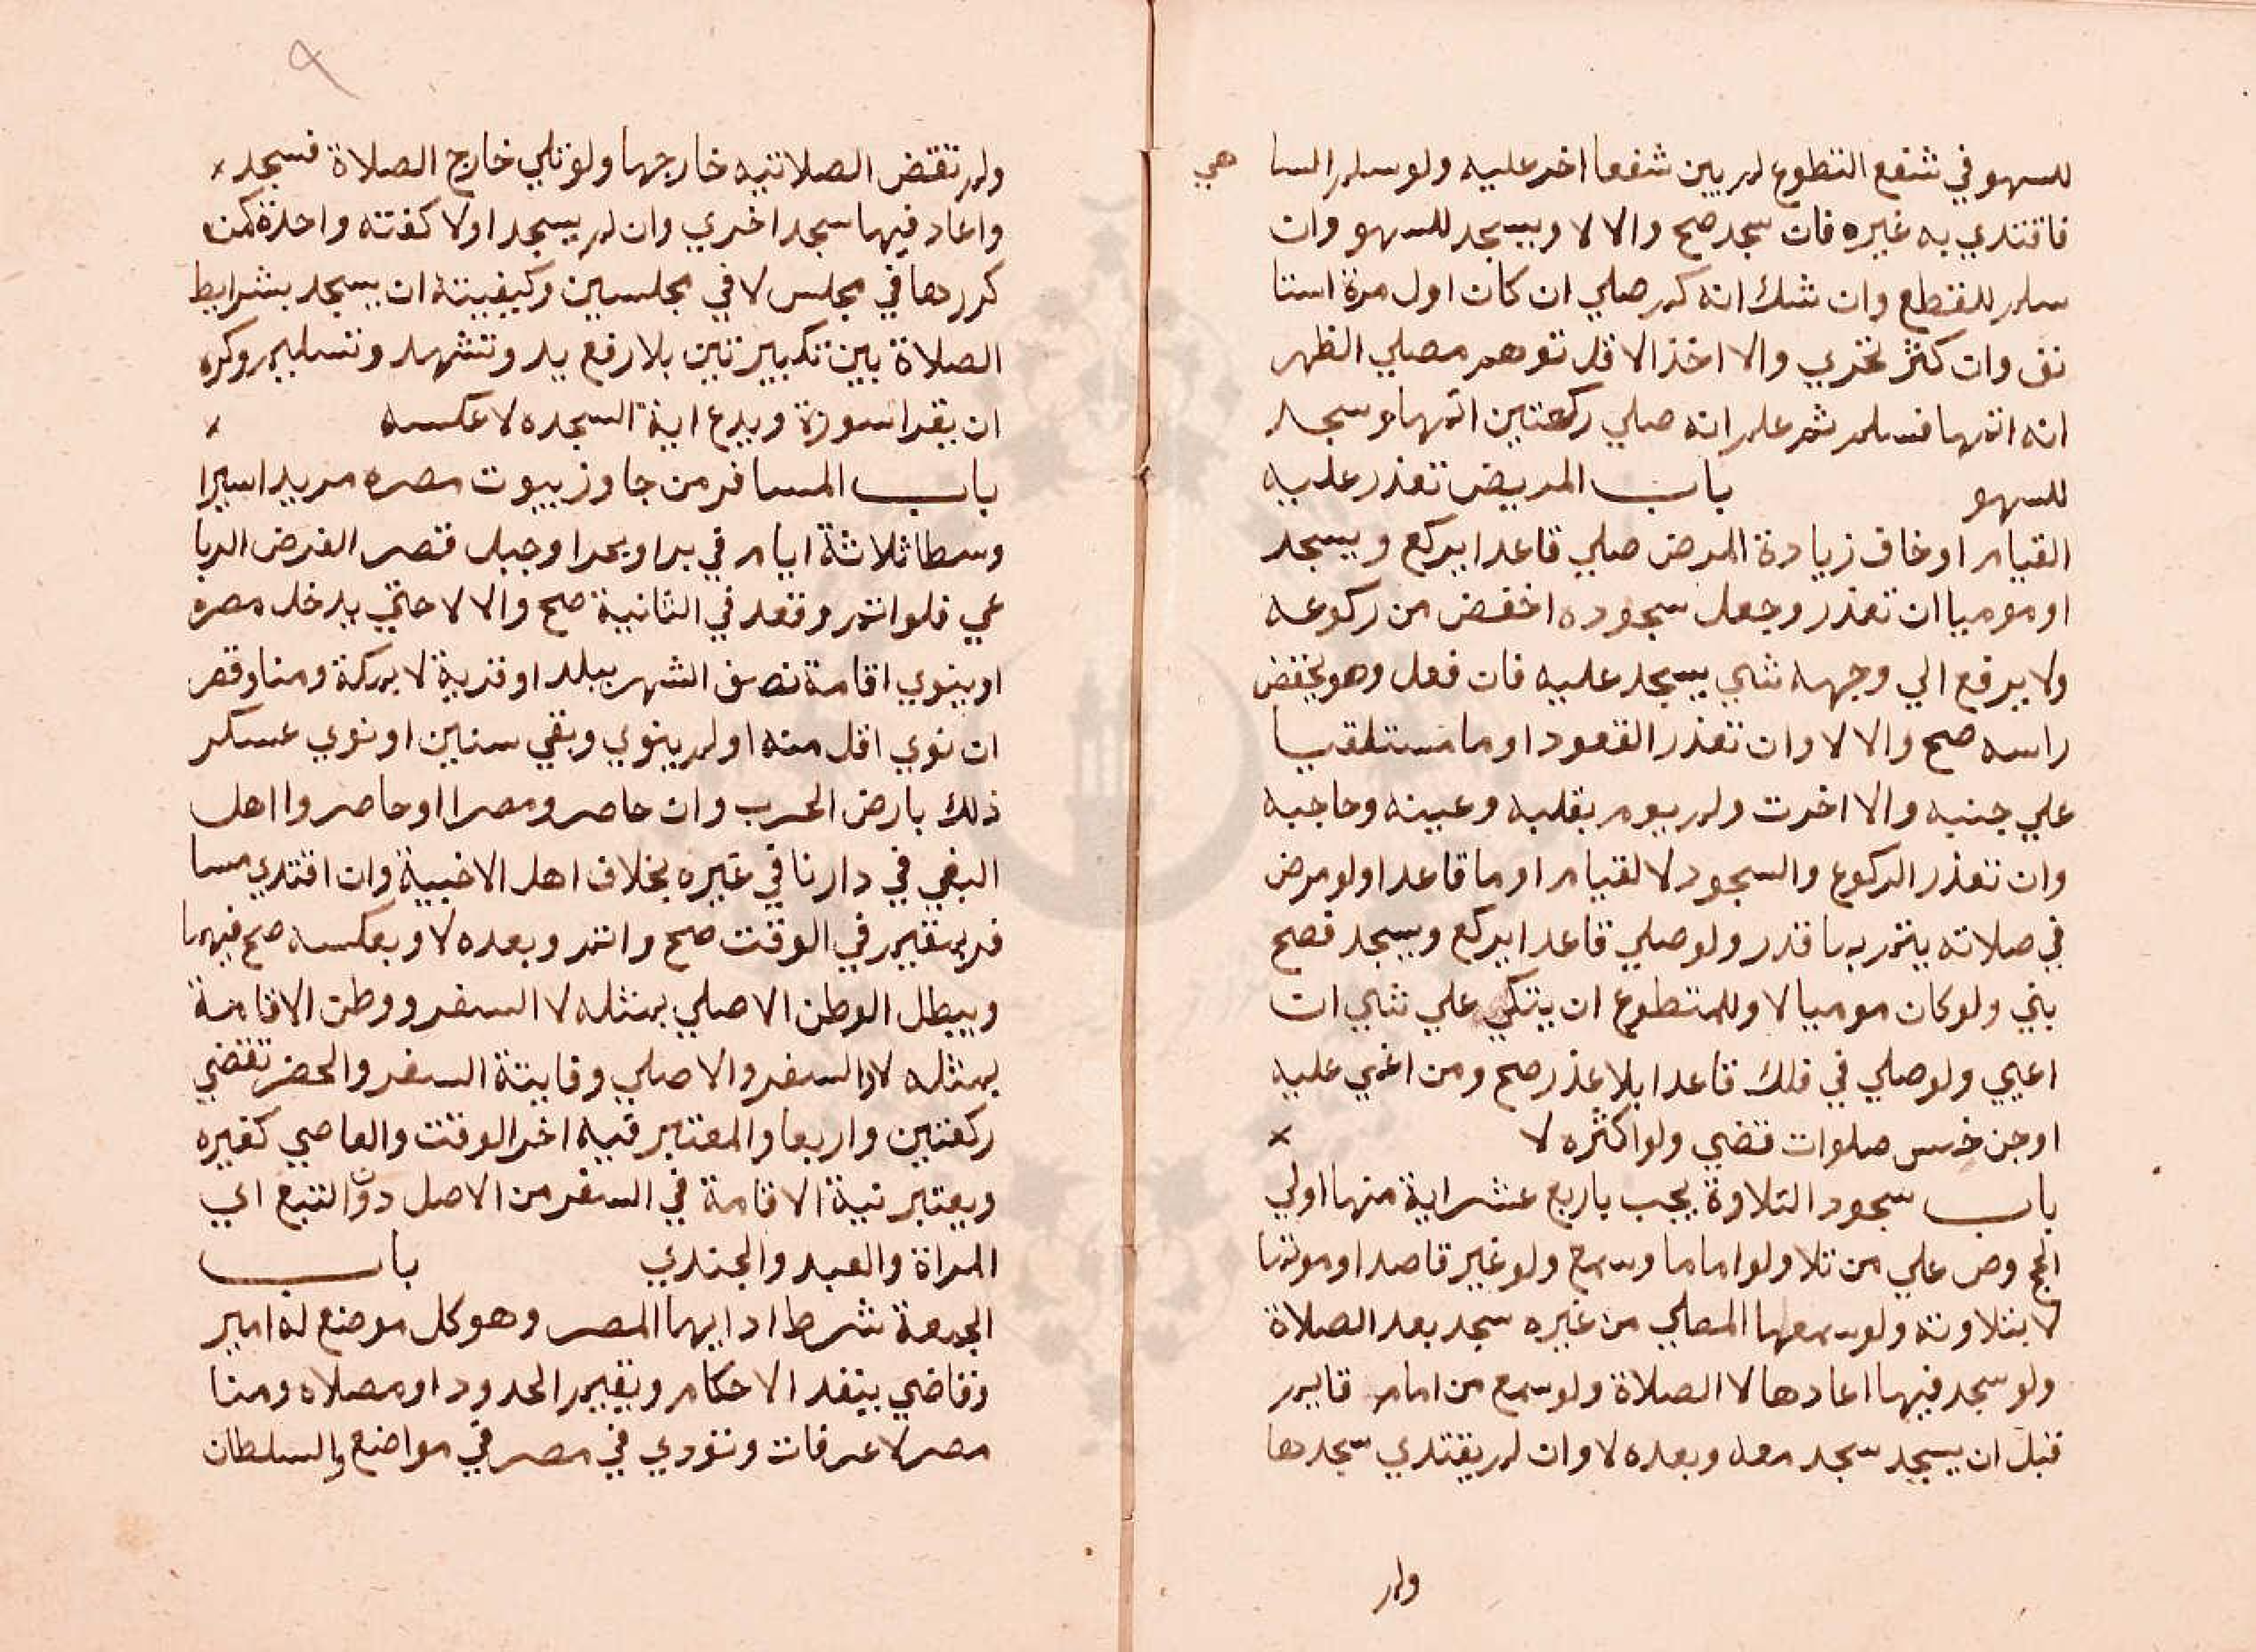 للسهو في شفع التطوع لم يبن شفعا اخر عليه ولو سلم السا هي
فاقتدي به غيره فان سجد صح والا لا ويسجد للسهو وان
سلم للقطع وان شك انه كم صلي ان كان اول مرة استا
نف وان كثر تحري والا اخذ الاقل توهم مصلي الظهر
انه اتمها فسلم ثم علم انه صلي ركعتين اتمها وسجد
للسهو باب المريض تعذر عليه
القيام او خاف زيادة المرض صلي قاعدا يركع ويسجد
او موميا ان تعذر وجعل سجوده اخفض من ركوعه
ولا يرفع الي وجهه شي يسجد عليه فان فعل وهو يخفض
راسه صح والا لا وان تعذر القعود اوما مستلقيا
علي جنبه والا اخرت ولم يوم بقلبه وعينه وحاجبه
وان تعذر الركوع والسجود لا لقيام اوما قاعدا ولو مرض
في صلاته يتم بما قدر ولو صلي قاعدا يركع ويسجد فصح
بني ولو كان موميا لا وللمتطوع ان يتكي علي شي ان
اعيي ولو صلي في فلك قاعدا بلا عذر صح ومن اغمي عليه
او جن خمس صلوات قضي ولو اكثره لا
باب سجود التلاوة يجب باربع عشر اية منها اولي
الحج وص علي من تلا ولو اماما وسمع ولو غير قاصد او موتما
لا بتلاوته ولو سمعها المصلي من غيره سجد بعد الصلاة
ولو سجد فيها اعادها لا الصلاة ولو سمع من امام قايم
قبل ان يسجد سجد معه وبعده لا وان لم يقتدي سجدها
ولم
ولم تقض الصلاتيه خارجها ولو تلي خارج الصلاة فسجد
واعاد فيها سجد اخري وان لم يسجد اولا كفته واحدة كمن
كررها في مجلس لا في مجلسين وكيفيته ان يسجد بشرايط
الصلاة بين تكبيرتين بلا رفع يد وتشهد وتسليم وكره
ان يقرا سورة ويدع اية السجده لا عكسه
باب المسافر من جاوز بيوت مصره مريدا سيرا
وسطا ثلاثة ايام في برا وبحرا وجبل قصر الفرض الربا
عي فلو اتم وقعد في الثانية صح والا لا حتي يدخل مصره
او ينوي اقامة نصف الشهر ببلد او قرية لا بمكة ومنا وقصر
ان نوي اقل منه او لم ينوي وبقي سنين او نوي عسكر
ذلك بارض الحرب وان حاصرو مصرا او حاصروا اهل
البغي في دارنا في غيره بخلاف اهل الاخبية وان اقتدي مسا
فر بمقيم في الوقت صح واتم وبعده لا وبعكسه صح فيهما
ويبطل الوطن الاصلي بمثله لا السفر ووطن الاقامة
بمثله والسفر والاصلي وفايتة السفر والحضر تقضي
ركعتين واربعا والمعتبر فيه اخر الوقت والعاصي كغيره
ويعتبر نية الاقامة في السفر من الاصل دون التبع اي
المراة والعبد والجندي باب
الجمعة شرط ادايها المصر وهو كل موضع له امير
وقاضي ينفد الاحكام ويقيم الحدود او مصلاه ومنا
مصر لا عرفات وتودي في مصر في مواضع والسلطان